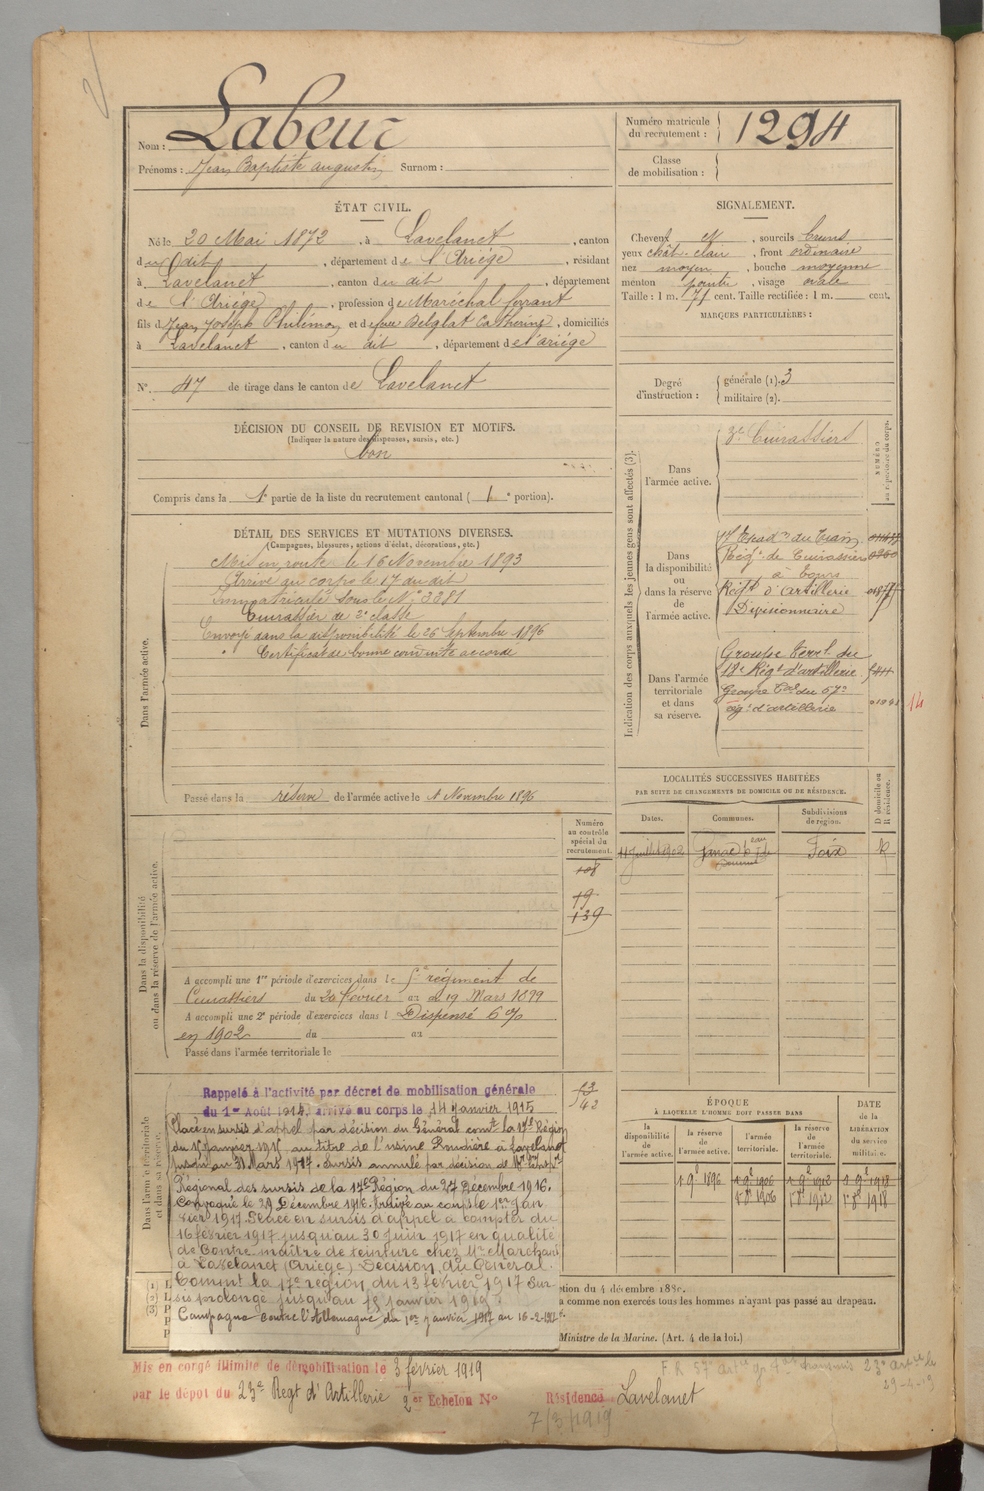 Nom : Labeur
Prénoms : Jean Baptiste Augustin Surnom :
Numéro matricule du recrutement : 1294
Classe de mobilisation :
ÉTAT CIVIL.
Né le 20 Mai 1872, à Lavelanet, canton
du dit, département de l'Ariège, résidant
à Lavelanet, canton du dit, département
de l'Ariège, profession de Maréchal ferrant
fils de Jean Joseph Philémon et de feue Delglat Catherine, domiciliés
à Lavelanet, canton du dit, département de l'ariége
N° 47 de tirage dans le canton de Lavelanet
SIGNALEMENT.
Cheveux et, sourcils bruns
yeux chât. clair, front ordinaire
nez moyen, bouche moyenne
menton pointu, visage ovale
Taille : 1 m. 71 cent. Taille rectifiée : 1 m. cent.
MARQUES PARTICULIÈRES :
Degré d'instruction : générale (1). 3
militaire (2).
DÉCISION DU CONSEIL DE REVISION ET MOTIFS.
(Indiquer la nature des dispenses, sursis, etc.)
bon
Compris dans la 1e partie de la liste du recrutement cantonal ( 1e portion).
DÉTAIL DES SERVICES ET MUTATIONS DIVERSES.
(Campagnes, blessures, actions d'éclat, décorations, etc.)
Dans l'armée active.
Mis en route le 16 Novembre 1893
Arrivé au corps le 17 du dit
Immatriculé sous le N° 3281
Cuirassier de 2e classe
Envoyé dans la disponibilité le 26 Septembre 1896
" Certificat de bonne conduite accordé
Passé dans la réserve de l'armée active le 1 Novembre 1896
Indication des corps auxquels les jeunes gens sont affectés (3).
NUMÉRO au répertoire du corps.
Dans l'armée active.
3e Cuirassiers
Dans la disponibilité ou dans la réserve de l'armée active.
Escad. du Train
Régt de Cuirassiers 0260
à Tours
Régt d'artillerie
Divisionnaire
Dans l'armée territoriale et dans sa réserve.
Groupe terrl. du
18e Régt d'artillerie
Groupe du 57e
régt d'artillerie
14
LOCALITÉS SUCCESSIVES HABITÉES
PAR SUITE DE CHANGEMENTS DE DOMICILE OU DE RÉSIDENCE.
Dates. Communes. Subdivisions de région. D domicile ou R résidence.
11 Juillet 1902 Foix R
Dans la disponibilité ou dans la réserve de l'armée active.
Numéro au contrôle spécial du recrutement.
108
19
139
A accompli une 1re période d'exercices dans le régiment de
Cuirassiers du 20 février au 19 Mars 1899
A accompli une 2e période d'exercices dans l Dispensé
en 1902 du au
Passé dans l'armée territoriale le
Dans l'armée territoriale et dans sa réserve.
42
Rappelé à l'activité par décret de mobilisation générale
du 1er Août 1914, arrivé au corps le 14 janvier 1915
Placé en sursis d'appel par décision du Général comt la 17e Région
au titre de l'usine à Lavelanet
jusqu'au 31 Mars 1917. Sursis annulé par décision de Mr
Régional des sursis de la 17e Région du 27 Décembre 1916.
Convoqué le 29 Décembre 1916. Arrivé au corps le 1er Jan
vier 1917. Placé en sursis d'appel à compter du
16 février 1917 jusqu'au 30 juin 1917 en qualité
de Contre maître de teinture chez Mr Marchand
à Lavelanet (Ariège) Décision du Général
Commt la 17e région du 13 février 1917 Sur
sis prolongé jusqu'au 15 janvier 1919.
Campagne contre l'Allemagne du 1er janvier 1917 au 16-2-1917.
ÉPOQUE
À LAQUELLE L'HOMME DOIT PASSER DANS
la disponibilité de l'armée active. la réserve de l'armée active. l'armée territoriale. la réserve de l'armée territoriale.
DATE de la LIBÉRATION du service militaire.
1 9e 1896 1 9e 1906 1 9e 1912 1 9e 1918
1 8e 1906 1 8e 1912 1 8e 1918
(1)
(2)
(3)
a comme non exercés tous les hommes n'ayant pas passé au drapeau.
Ministre de la Marine. (Art. 4 de la loi.)
Mis en congé illimité de démobilisation le 3 février 1919
par le dépôt du 23e Regt d'Artillerie 2er Echelon N° Résidence Lavelanet
7/3/1919
29-4-19